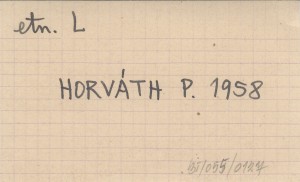 etn. L
HORVÁTH P. 1958
/055/0127